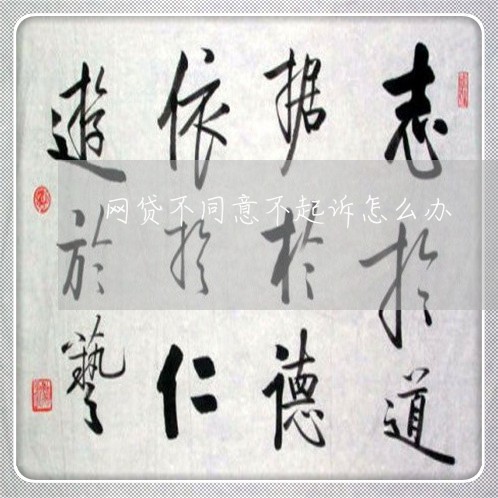 志於道
据於德
依於仁
遊於藝
网贷不同意不起诉怎么办